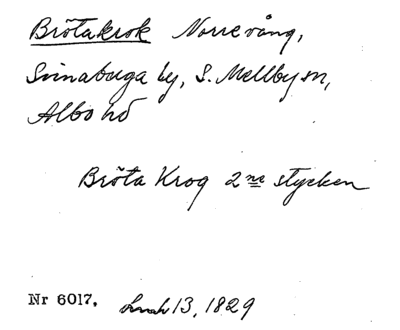 Brötakrok Norrevång,
Svinaberga by, S. Mellby sn,
Albo hd
Bröta Krog 2ne stycken
Nr 6017. Lmh 13, 1829